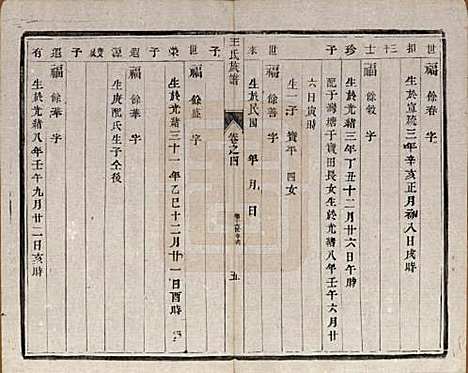 世福 餘春 字
和 生於宣統三年辛亥正月初八日戌時
三
十
士福 餘敦 字
珍 生於光緒三年丁丑十二月廿六日寅時
配于灣塘于寶田長女生於光緒八年壬午六月廿
子 六日寅時
生一子 寶平 四女
世福 餘善 字
來 生於民國 年 月 日
王氏族譜
卷之四
五
世福 餘盛 字
榮 生於光緒三十一年乙巳十二月廿一日酉時
子
福 餘華 字
源 生庚配氏生子仝後
子
福 餘華 字
有 生於光緒八年壬午九月廿二日亥時